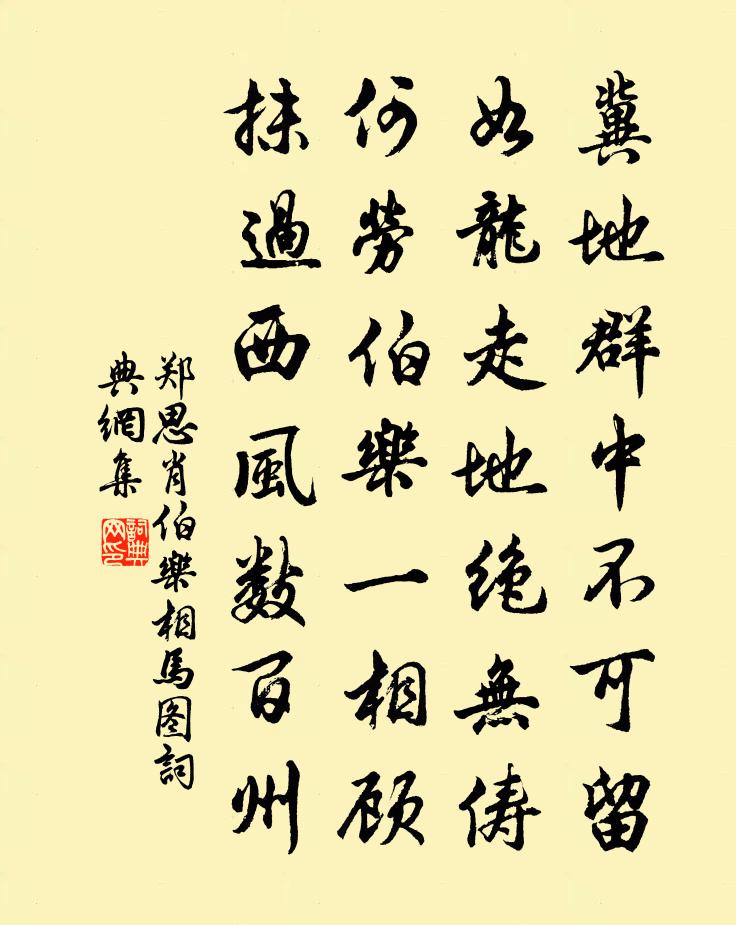 冀地群中不可留
如龍走地絶無儔
何勞伯樂一相顾
抹過西風數百州
郑思肖伯樂相馬图詞
典網集
詞典网印